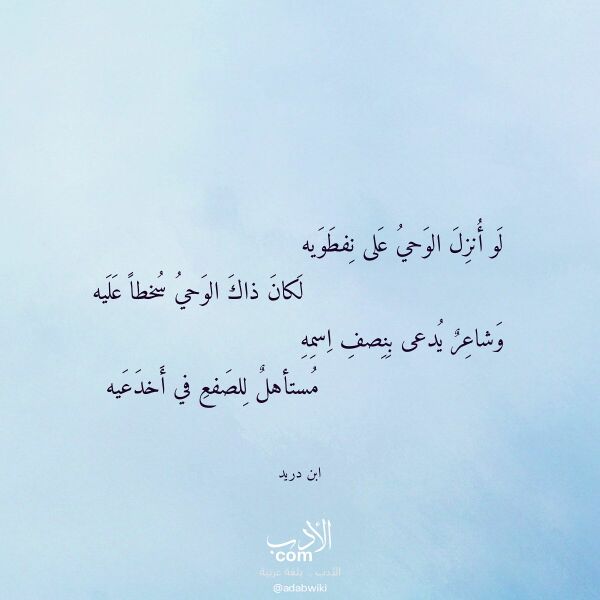 لَو أُنزِلَ الوَحيُ عَلى نِفطَوَيه
لَكانَ ذاكَ الوَحيُ سُخطاً عَلَيه
وَشاعِرٌ يُدعى بِنِصفِ اِسمِهِ
مُستأهلٌ لِلصَفعِ في أَخدَعَيه
ابن دريد
الأدب
com
الأدب .. بلغة عربية
@adabwiki